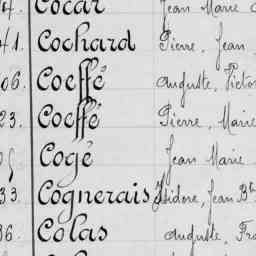 4. Cocar Jean Marie
41. Cochard Pierre, Jean
06. Coeffé Auguste, Victor
23. Coeffé Pierre, Marie
Cogé Jean Marie
33. Cognerais Isidore, Jean Bte
36. Colas Auguste, Fra